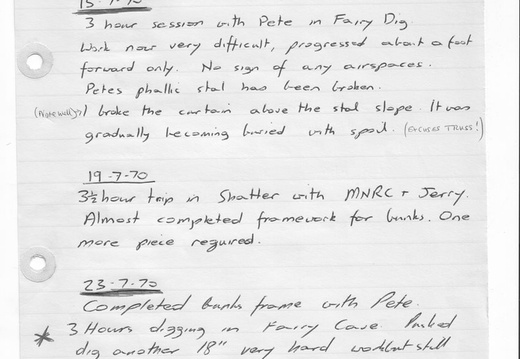 15-7-70
3 hour session with Pete in Fairy Dig
Work now very difficult, progressed about a foot
forward only. No sign of any airspaces.
Petes phallic stal has been broken.
(Note well)>> I broke the curtain above the stal slope. It was
gradually becoming buried with spoil. (EXCUSES TRUSS!)
19-7-70
3½ hour trip in Shatter with MNRC + Jerry.
Almost completed framework for bunks. One
more piece required.
23-7-70
Completed bunks frame with Pete.
* 3 Hours digging in Fairy Cave. Pushed
dig another 18" very hard work but still